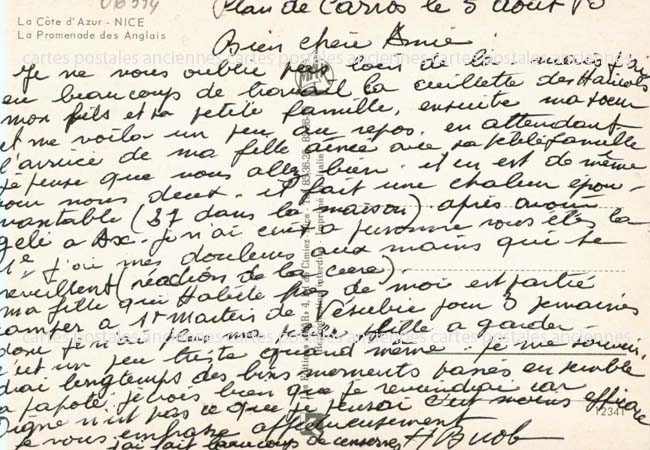 UB394
La Côte d'Azur - NICE
La Promenade des Anglais
Plan de Carros le 5 août
Bien chère Amie
cartes postales anciennes cartes postales anciennes cartes postales anciennes
Je ne vous oublie pas loin de là, mais j'ai
eu beaucoup de travail la cueillette des Haricots
mon fils et sa petite famille, ensuite ma soeur
et me voilà un peu au repos, en attendant
l'arrivée de ma fille aînée avec sa petite famille
je pense que vous allez bien. il en est de même
pour nous deux. il fait une chaleur épou-
vantable (37 dans la maison) après avoir
gelé a Ax. je n'ai écrit a personne vous êtes la
1e j'ai mes douleurs aux mains qui se
reveillent (réaction de la cure).
ma fille qui habite près de moi est partie
camper a St Martin de Vésubie pour 3 semaines
donc je n'ai plus ma petite fille a garder
cartes postales anciennes cartes postales anciennes cartes postales anciennes
c'est un peu triste quand même. Je me souvien-
drai longtemps des bons moments passés ensemble
a papoté. je vois bien que je reviendrai car
Digne n'est pas ce que je pensai c'est moins efficace
12341
je vous embrasse affectueusement
j'ai fait beaucoup de conserves